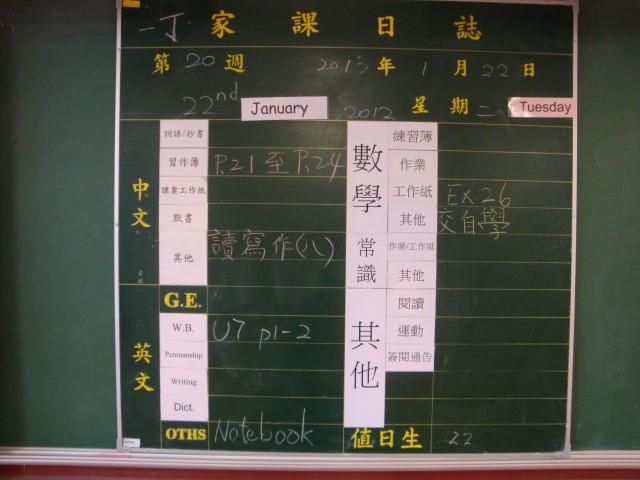 一丁 家課日誌
第 20 週 2013 年 1 月 22 日
22nd January 2012 星期二 Tuesday
中文
詞語/抄書
習作簿 P.21 至 P.24
課業工作紙
默書
其他 讀寫作(八)
英文
G.E.
W.B. U7 p1-2
Penmanship
Writing
Dict.
OTHS Notebook
數學
練習簿
作業
工作紙 EX 26
其他 交自學
常識
作業/工作紙
其他
其他
閱讀
運動
簽閱通告
值日生 22